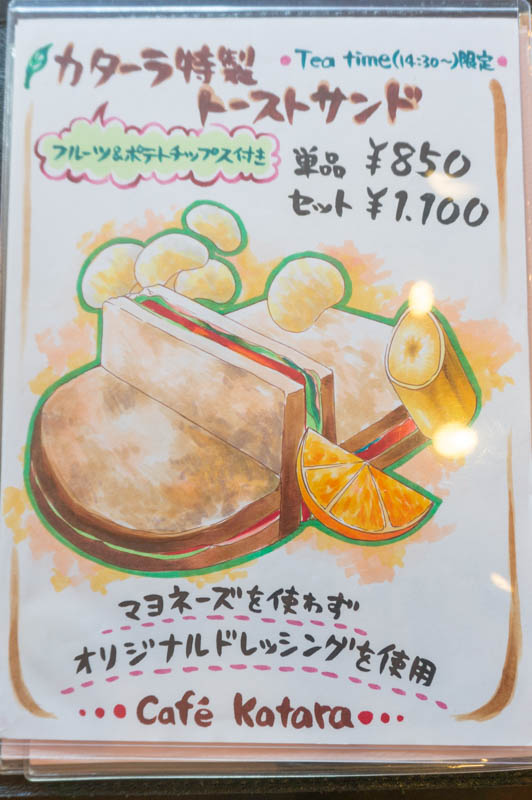 カターラ特製
Tea time(14:30~)限定
トーストサンド
フルーツ&ポテトチップス付き
単品 ¥850
セット ¥1.100
マヨネーズを使わず
オリジナルドレッシングを使用
Café Katara